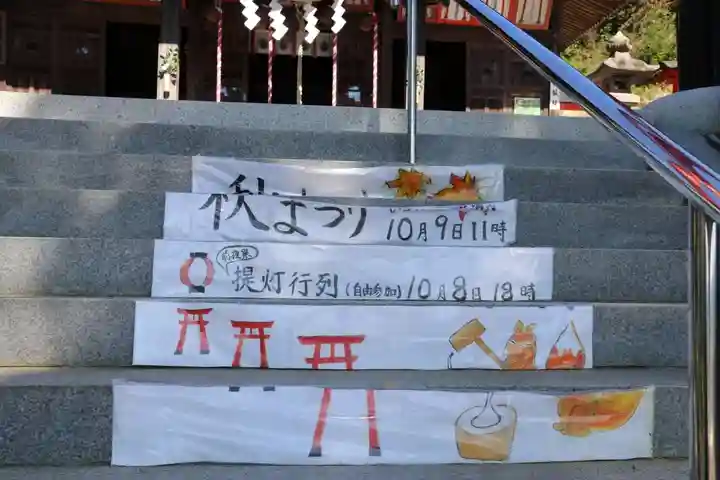 秋まつり 10月9日11時
前夜祭
提灯行列(自由参加)10月8日18時